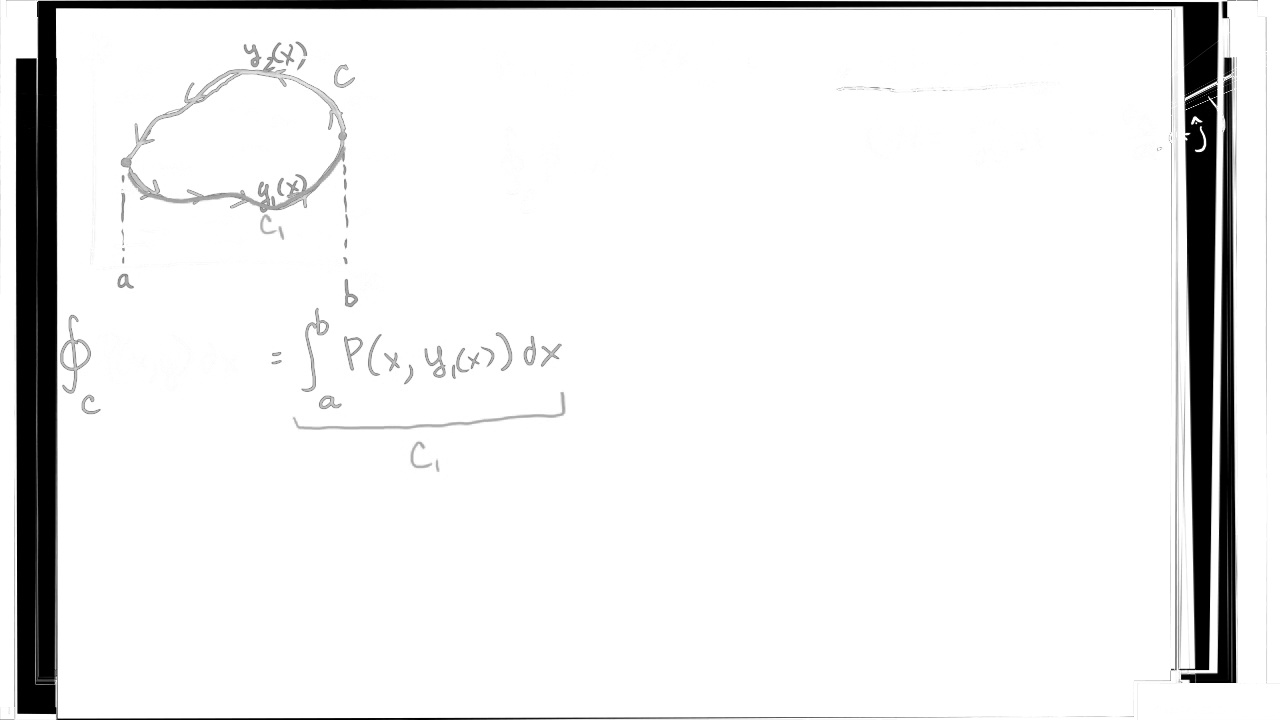 y₂(x)
C
y₁(x)
C₁
a
b
∮_C = ∫_a^b P(x, y₁(x)) dx
C₁
ĵ